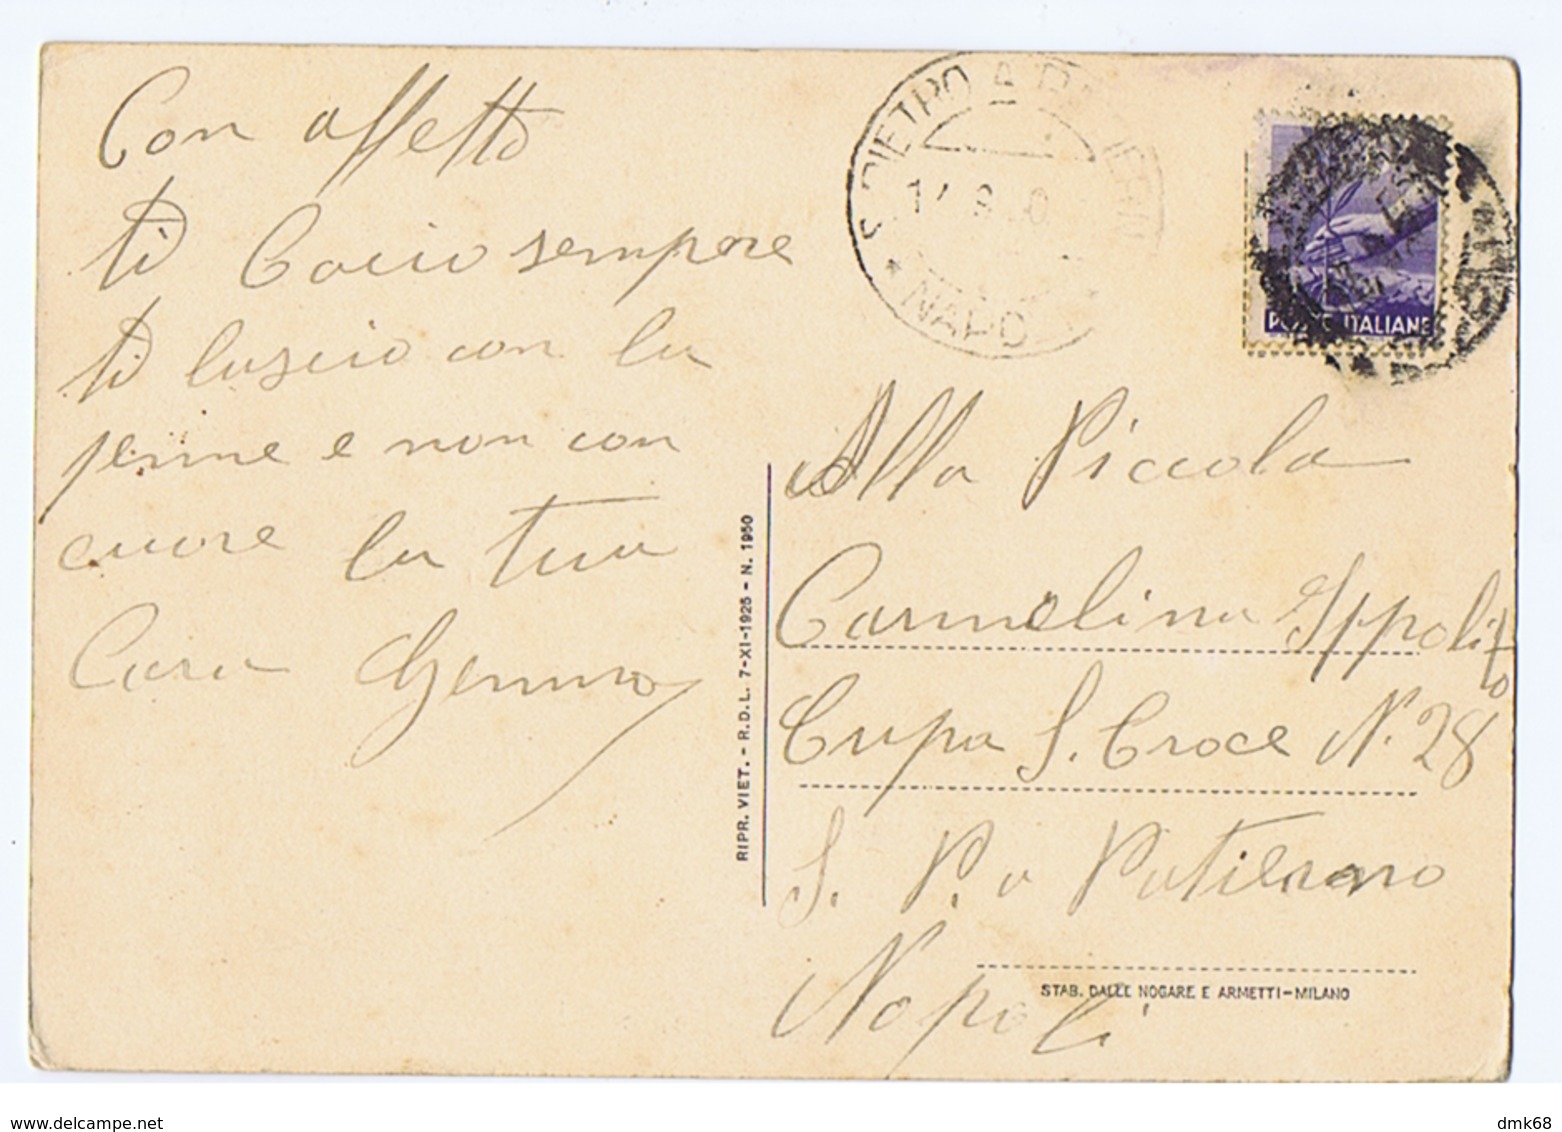 Con affetto
ti bacio sempre
ti lascio con la
penna e non con
cuore la tua
Cara Gemma
RIPR. VIET. - R.D.L. 7-XI-1925 - N. 1950
S. PIETRO A
NAPO
POSTE ITALIANE
Alla Piccola
Carmelina Ippolito
Cupa S. Croce N. 28
S. P. a Patierno
Napoli
STAB. DALLE NOGARE E ARMETTI-MILANO
www.delcampe.net
dmk68